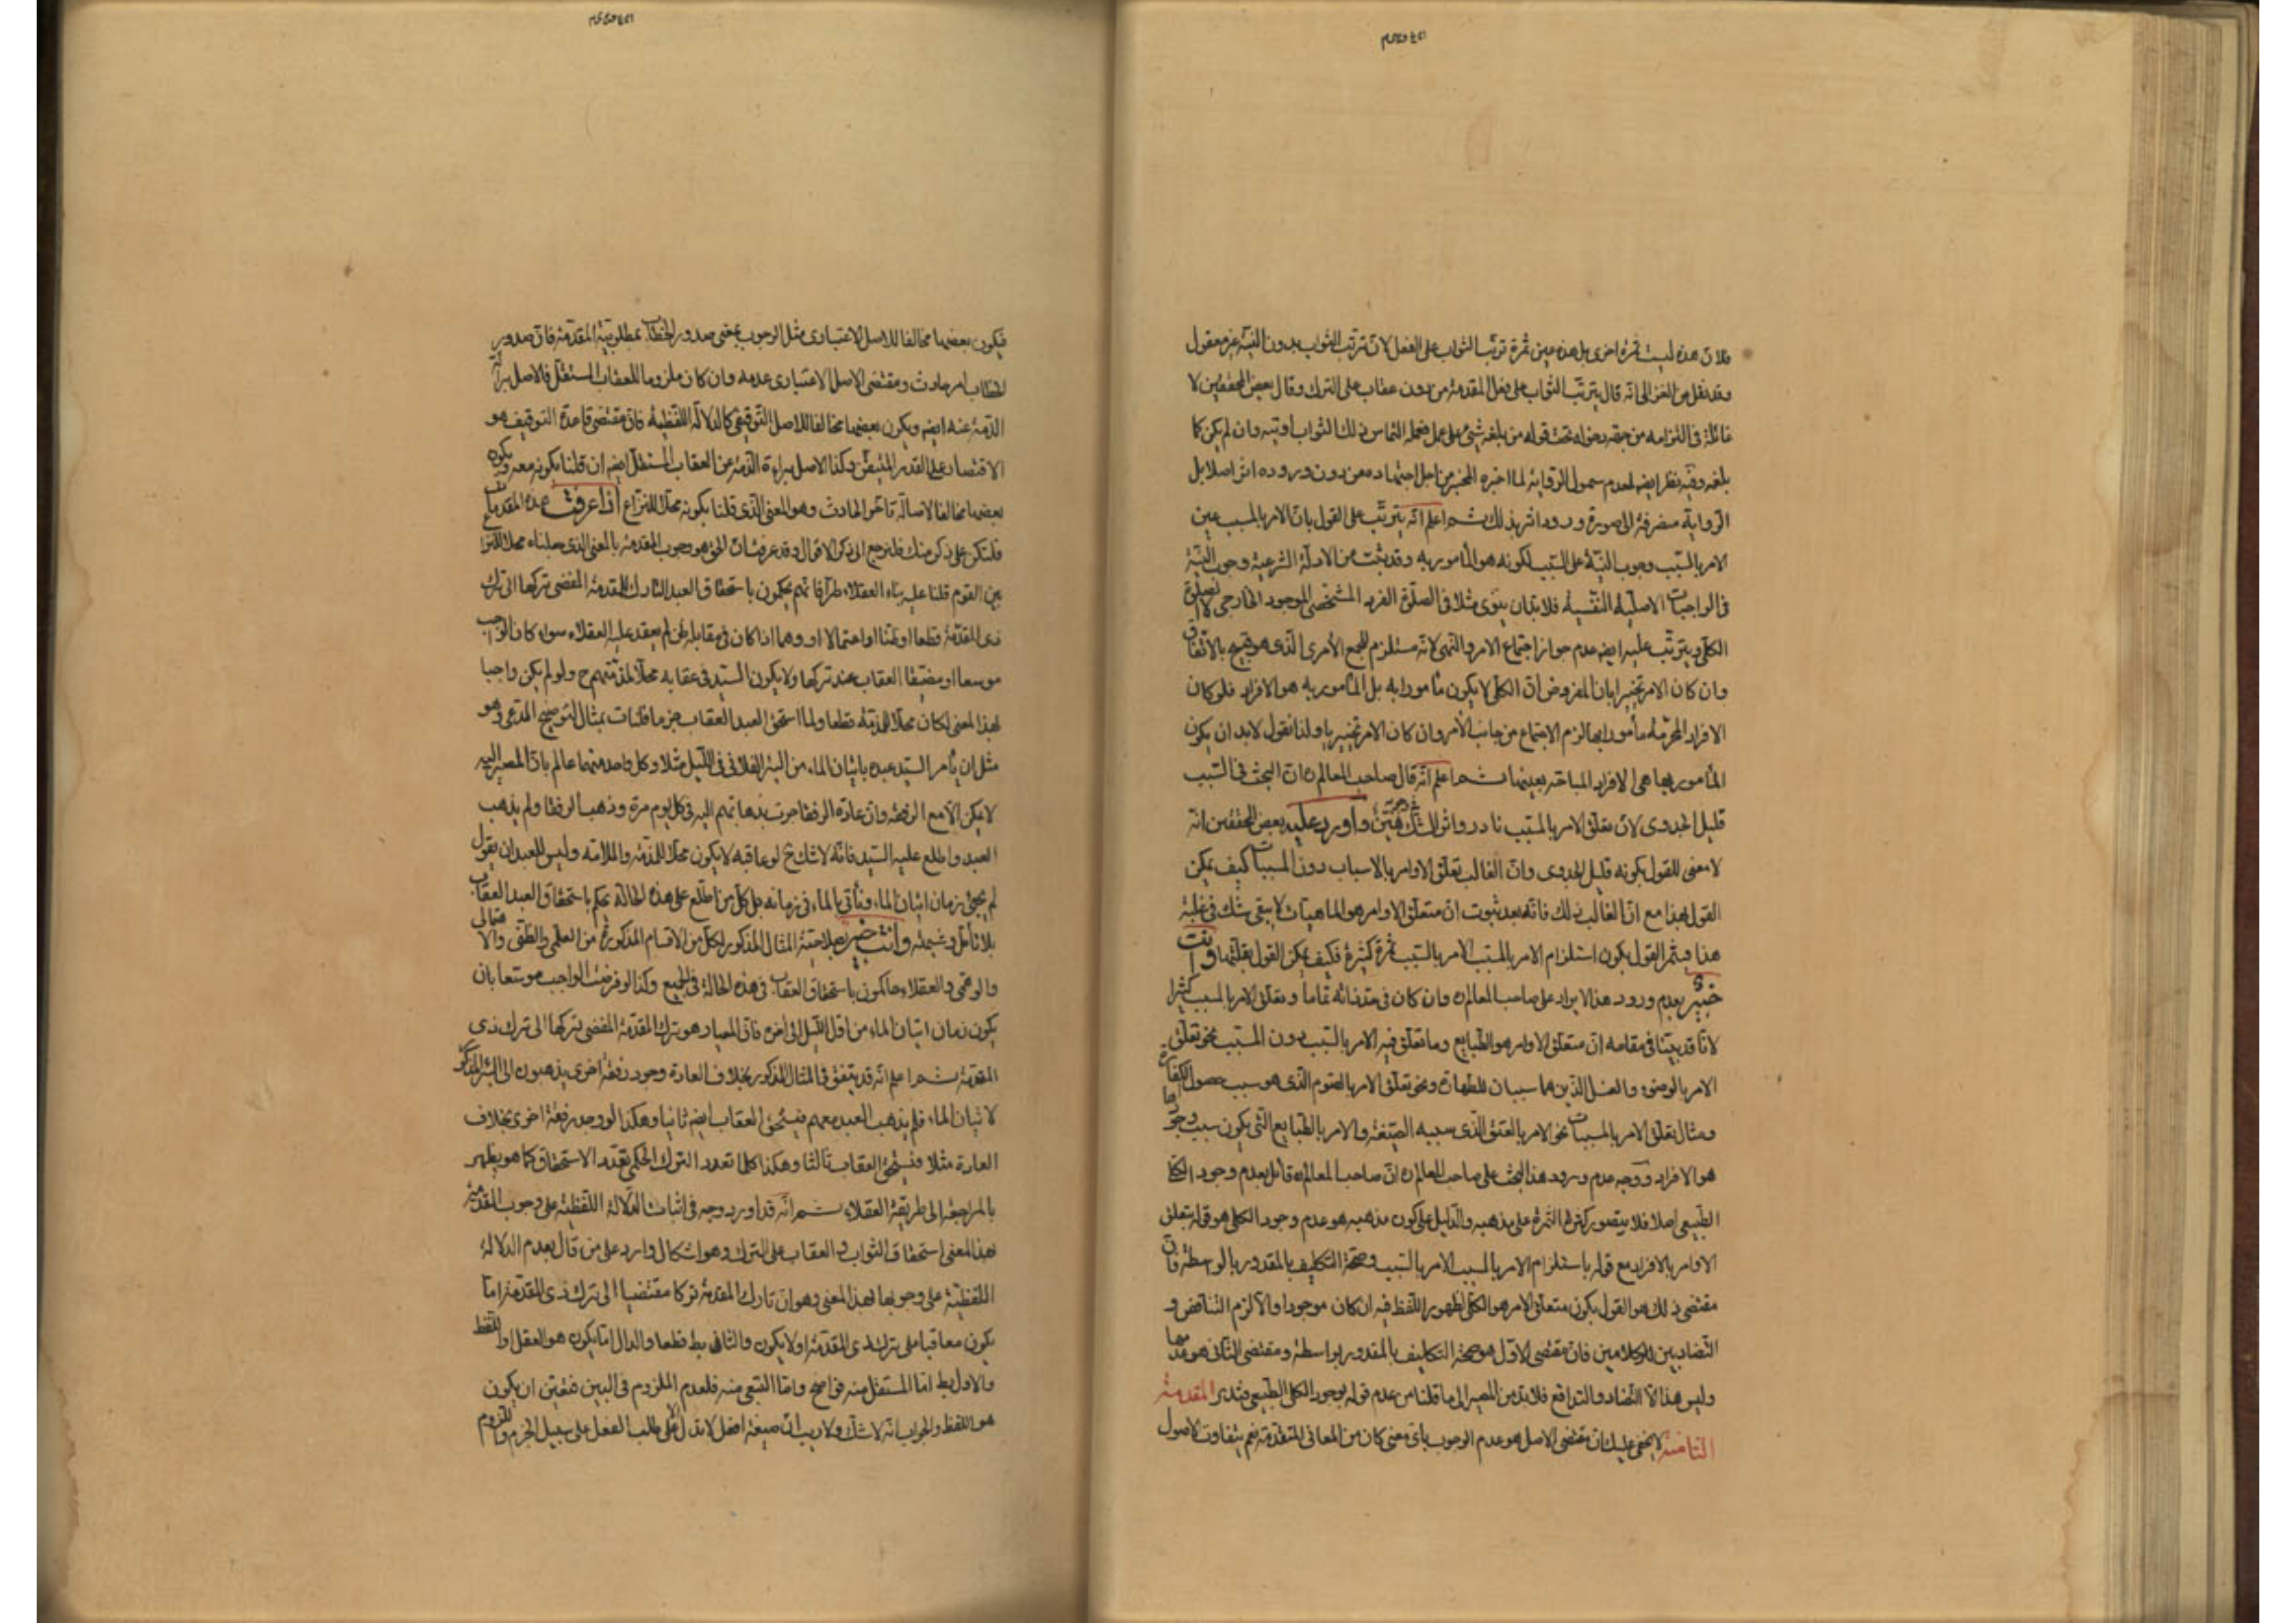 فلان هذه ليست ثمرة اخرى بل هذه عين ثمرة ترتب الثواب على الفعل لان ترتب الثواب بدون النية غير معقول
وقد نقل عن الغزالى انه قال بترتب الثواب على فعل المقدمة من دون عقاب على الترك وقال بعض المحققين لا
غائلة فى التزامه من جهة دخوله تحت قوله من بلغه شيئ على عمل فعمله التماس ذلك الثواب اوتيه وان لم يكن كما
بلغه وفيه نظر ايضا لعدم شمول الرواية لما اخبره المخبر من اجل اجتهاده من دون ورود اثر اصلا بل
الرواية منصرفة الى صورة ورود اثر بذلك ثم اعلم انه يترتب على القول بان الامر بالمسبب عين
الامر بالسبب وجوب النية على السبب لكونه هو المأمور به وقد ثبت من الادلة الشرعية وجوب النية
فى الواجبات الاصلية النفسية فلا بد ان ينوى مثلا فى الصلوة الفرد المشخصى الموجود الخارجى لا الصلوة
الكلى ويترتب عليه ايضا عدم جواز اجتماع الامر والنهى لانه مستلزم للجمع الأمرى الذى هو قبيح بالاتفاق
وان كان الامر تخييرا بان المفروض ان الكلى لا يكون مأمورا به بل المأمور به هو الافراد فلو كان
الافراد المحرمة مأمورا بها لزم الاجتماع من جانب الأمر وان كان الامر تخييريا ولذا نقول لابد ان يكون
المأمور بها هى الافراد المباحة بعينها ثم اعلم انه قال صاحب المعالم ره ان البحث فى السبب
قليل الجدوى لان تعلق الامر بالمسبب نادر واثر الشك هين وأورد عليه بعض المحققين انه
لا معنى للقول بكونه قليل الجدوى وان الغالب تعلق الاوامر بالاسباب دون المسببات كيف يمكن
القول بهذا مع ان الغالب ذلك فانه بعد ثبوت ان متعلق الاوامر هو الماهيات لا يبقى شك فى غلبة
هذا وثمر القول بكون استلزام الامر بالمسبب الامر بالسبب ثمرة كثيرة فكيف يمكن القول بقلتها وانت
خبير بعدم ورود هذا الايراد على صاحب المعالم ره وان كان فى حد ذاته تماما وتعلق الامر بالمسبب كثيرا
لانا قد بينا فى مقامه ان متعلق الاوامر هو الطبايع وما تعلق فيه الامر بالسبب دون المسبب نحو تعلق
الامر بالوضوء والغسل الذين هما سببان للطهارة ونحو تعلق الامر بالصوم الذى هو سبب حصول الكفارة
ومثال تعلق الامر بالمسببات نحو الامر بالعتق الذى سببه الصيغة والامر بالطبايع التى يكون سبب وجودها
هو الافراد ووجه عدم ورود هذا البحث على صاحب المعالم ره ان صاحب المعالم ره قائل بعدم وجود الكلى
الطبيعى اصلا فلا يتصور كثرة الثمرة على مذهبه والدليل على كون مذهبه هو عدم وجود الكلى هو قوله بتعلق
الاوامر بالافراد مع قوله باستلزام الامر بالمسبب الامر بالسبب وصحة التكليف بالمقدور بالواسطة فان
مقتضى ذلك هو القول بكون متعلق الامر هو الكلى لظهور اللفظ فيه ان كان موجودا والا لزم التناقض و
التضاد بين الكلامين فان مقتضى الاول هو صحة التكليف بالمقدور بواسطة ومقتضى الثانى هو عدمها
وليس هذا الا التضاد والتدافع فلا بد من المصير الى ما قلنا من عدم قوله بوجود الكلى الطبيعى فتدبر المقدمة
الثامنة لا يخفى عليك ان مقتضى الاصل هو عدم الوجوب باى معنى كان من المعانى المتقدمة نعم يتفاوت الاصول
فيكون بعضها مخالفا للاصل الاعتبارى مثل الوجوب بمعنى صدور الخطاب بمطلوبية المقدمة فان صدور
الخطاب امر حادث ومقتضى الاصل الاعتبارى عدمه وان كان ملزوما للعقاب المستقل فالاصل برائة
الذمة عنه ايضا ويكون بعضها مخالفا للاصل التوقيفى كالدلالة اللفظية فان مقتضى قاعدة التوقيف هو
الاقتصار على القدر المتيقن وكذا الاصل براءة الذمة عن العقاب المستقل ايضا ان قلنا بكونه معه ويكون
بعضها مخالفا لاصالة تاخر الحادث وهو المعنى الذى قلنا بكونه محلا للنزاع اذا عرفت هذه المقدمات
فلتكن على ذكر منك فلنرجع الى ذكر الاقوال وقد عرفت ان الحق هو وجوب المقدمة بالمعنى الذى جعلناه محلا للنزاع
بين القوم قلنا عليه بناء العقلاء طرا فانهم يحكمون باستحقاق العبد التارك للمقدمة المفضى تركها الى ترك
ذى المقدمة قطعا او ظنا او احتمالا او وهما اذا كان فى مقابله ظن لم يعتمد عليه العقلاء سواء كان الواجب
موسعا او مضيقا العقاب عند تركها ولا يكون السيد فى عقابه محلا لمذمتهم ح ولو لم يكن واجبا
بهذا المعنى لكان محلا للمذمة قطعا ولما استحق العبد العقاب جزما فلنات بمثال لتوضيح المدعى وهو
مثل ان يأمر السيد عبده باتيان الماء من البئر الفلانى فى الليل مثلا وكل واحد منهما عالم بان المصير اليه
لا يمكن الا مع الرفقة وان عادة الرفقا جرت بذهابهم اليه فى كل يوم مرة وذهب الرفقا ولم يذهب
العبد واطلع عليه السيد فانه لا شك ح لو عاقبه لا يكون محلا للمذمة والملامة وليس للعبد ان يقول
لم يجئ زمان اتيان الماء ونأتى بالماء فى زمانه بل كل من اطلع على هذه الحالة يحكم باستحقاق العبد العقاب
بلا تأمل وشبهة وانت خبير بصلاحية المثال المذكور لكل من الاقسام المذكورة من العلمى والظنى والاحتمالى
والوهمى والعقلاء حاكمون باستحقاق العقاب فى هذه الحالة فى الجميع وكذا لو فرضت الواجب موسعا بان
يكون زمان اتيان الماء من اول الليل الى اخره فان المعيار هو ترك المقدمة المفضى تركها الى ترك ذى
المقدمة ثم اعلم انه قد يتفق فى المثال المذكور بخلاف العادة وجود رفقة اخرى يذهبون الى البئر المذكور
لاتيان الماء فلم يذهب العبد معهم فيستحق العقاب ايضا ثانيا وهكذا لو وجد رفقة اخرى بخلاف
العادة مثلا فيستحق العقاب ثالثا وهكذا كلما تعدد الترك الحكمى تعدد الاستحقاق كما هو يظهر
بالمراجعة الى طريقة العقلاء ثم انه قد اورد وجه فى اثبات الدلالة اللفظية على وجوب المقدمة
بهذا المعنى استحقاق الثواب والعقاب على الترك وهو اشكال وارد على من قال بعدم الدلالة
اللفظية على وجوبها بهذا المعنى وهو ان تارك المقدمة تركا مقتضيا الى ترك ذى المقدمة اما
يكون معاقبا على ترك ذى المقدمة او لا يكون والثانى بط قطعا والدال اما يكون هو العقل او اللفظ
والاول بط اما المستقل منه فواضح واما التبعى منه فلعدم الملزوم فى البين فتعين ان يكون
هو اللفظ والجواب انه لا شك ولا ريب ان صيغة افعل لا تدل الا على طلب الفعل على سبيل الجزم واللزوم